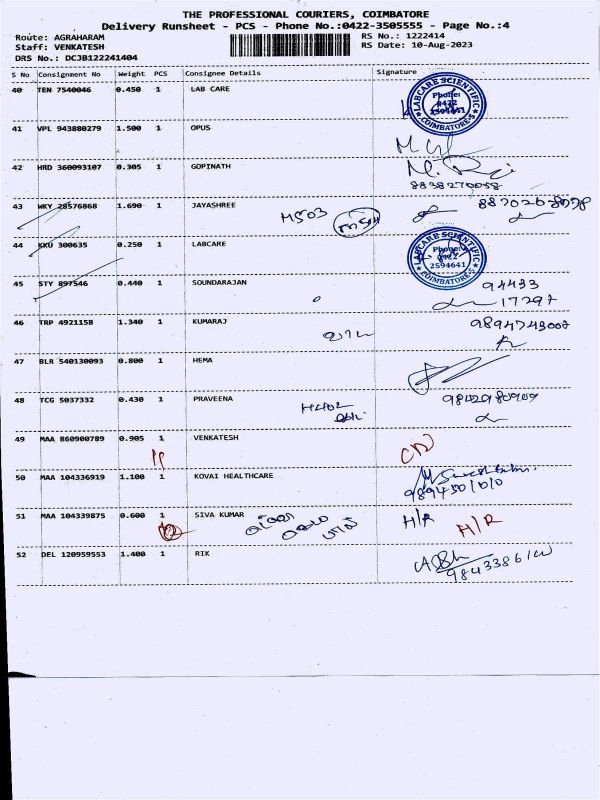 THE PROFESSIONAL COURIERS, COIMBATORE
Delivery Runsheet - PCS - Phone No.:0422-3505555 - Page No.:4
Route: AGRAHARAM RS No.: 1222414
Staff: VENKATESH RS Date: 10-Aug-2023
DRS No.: DCJB122241404
S No Consignment No Weight PCS Consignee Details Signature
40 TEN 7540046 0.450 1 LAB CARE
LABCARE SCIENTIFIC
Phone:
0422
2594641
COIMBATORE-5
41 VPL 943880279 1.500 1 OPUS
42 HRD 360093107 0.305 1 GOPINATH
8838270058
43 WKY 28576868 1.690 1 JAYASHREE H503
44 KKU 300635 0.250 1 LABCARE
LABCARE SCIENTIFIC
Phone:
0422
2594641
COIMBATORE-5
45 STY 897546 0.440 1 SOUNDARAJAN 94433
17297
46 TRP 4921158 1.340 1 KUMARAJ 9894743007
47 BLR 540130093 0.800 1 HEMA
48 TCG 5037332 0.430 1 PRAVEENA H402
49 MAA 860900789 0.905 1 VENKATESH
50 MAA 104336919 1.100 1 KOVAI HEALTHCARE
51 MAA 104339875 0.600 1 SIVA KUMAR H/R H/R
52 DEL 120959553 1.400 1 RIK